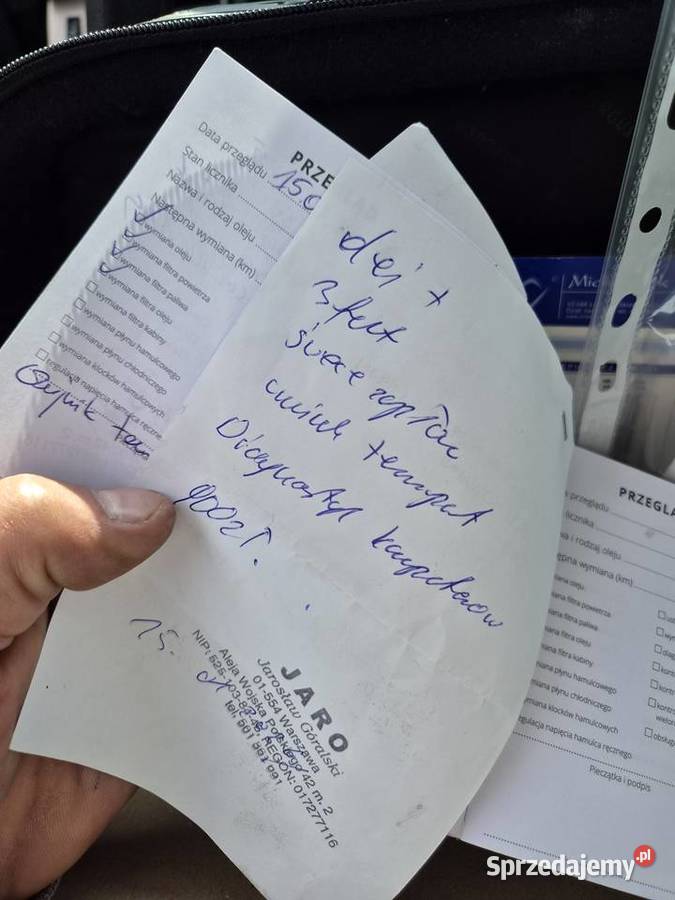 PRZE
Data przeglądu 150
Stan licznika
Nazwa i rodzaj oleju
Następna wymiana (km)
wymiana oleju
wymiana filtra powietrza
wymiana filtra paliwa
wymiana filtra oleju
wymiana filtra kabiny
wymiana płynu hamulcowego
wymiana płynu chłodniczego
wymiana klocków hamulcowych
regulacja napięcia hamulca ręczne
Czujnik tem
olej +
3 filt
świece
czujnik temperat
Diagnostyk komputerow
900zł.
15.
JARO
Jarosław Góralski
01-554 Warszawa
Aleja Wojska Polskiego 42 m. 2
REGON: 017277116
PRZEGLĄ
przeglądu
licznika
a i rodzaj oleju
ępna wymiana (km)
iana oleju
iana filtra powietrza
iana filtra paliwa
iana filtra oleju
iana filtra kabiny
miana płynu hamulcowego
miana płynu chłodniczego
miana klocków hamulcowych
egulacja napięcia hamulca ręcznego
Pieczątka i podpis
Sprzedajemy.pl